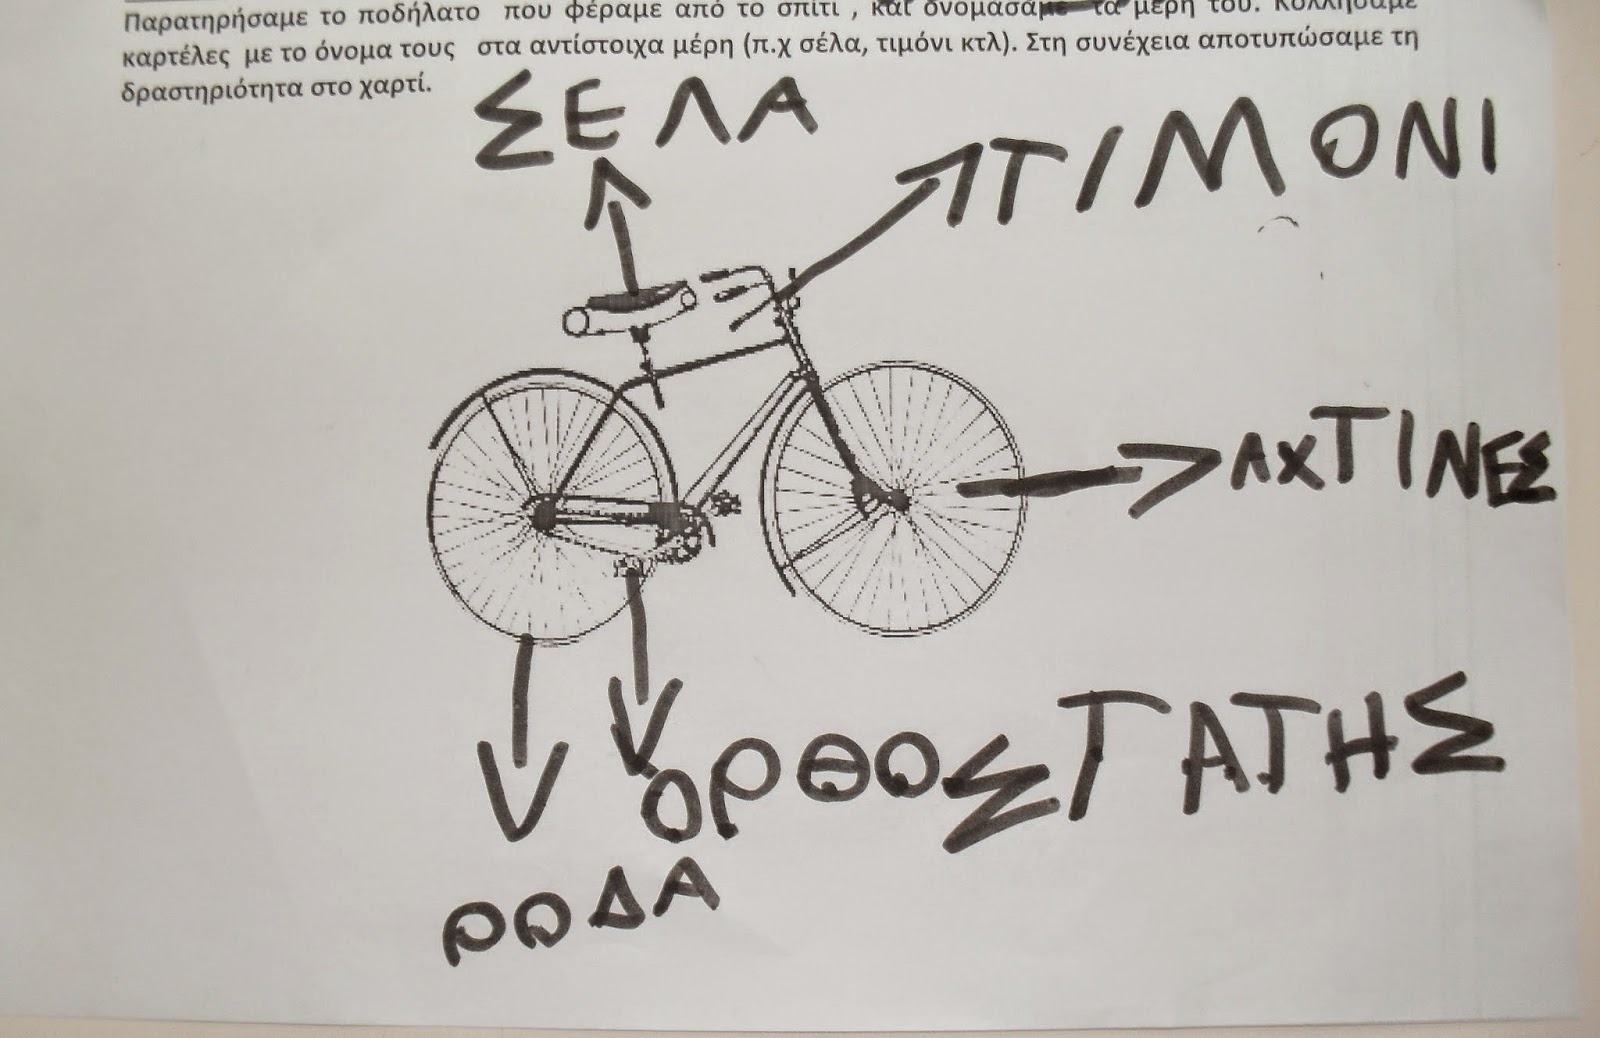 Παρατηρήσαμε το ποδήλατο που φέραμε από το σπίτι , και ονομάσαμε τα μέρη του. Κολλήσαμε
καρτέλες με το όνομα τους στα αντίστοιχα μέρη (π.χ σέλα, τιμόνι κτλ). Στη συνέχεια αποτυπώσαμε τη
δραστηριότητα στο χαρτί.
ΣΕΛΑ
ΤΙΜΟΝΙ
ΑΧΤΙΝΕΣ
ΟΡΘΟΣΤΑΤΗΣ
ΡΟΔΑ